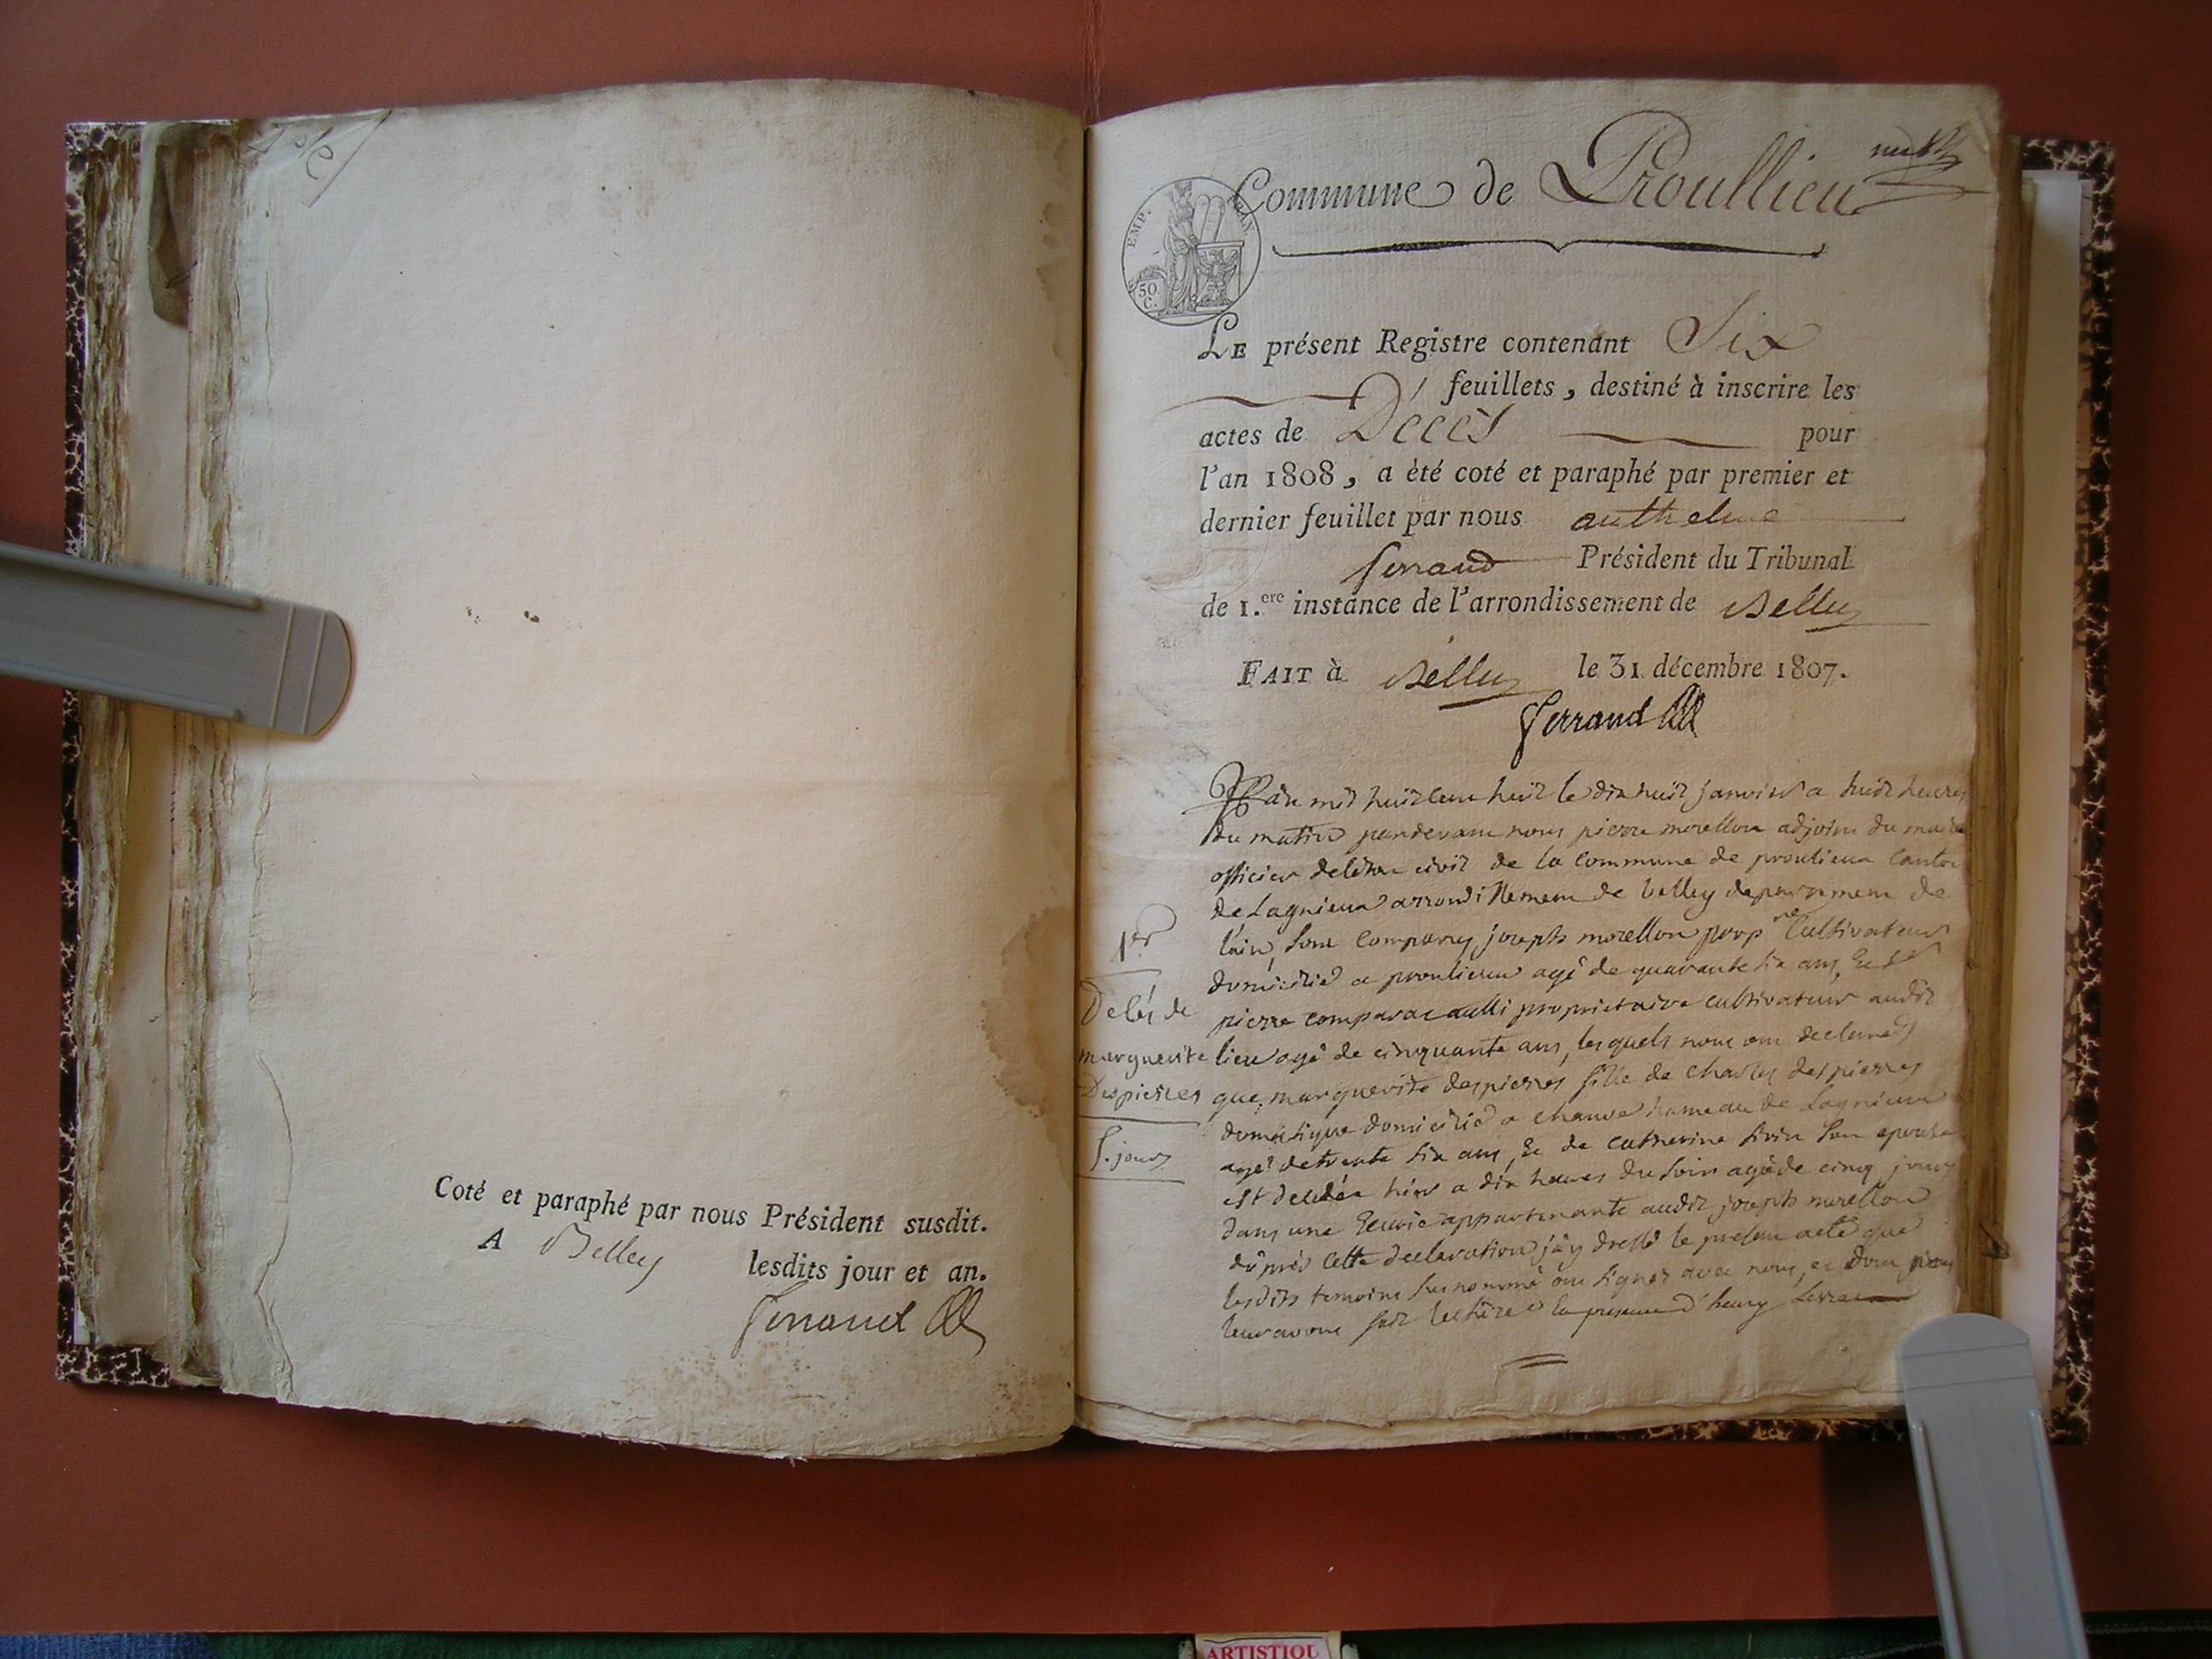 Coté et paraphé par nous Président susdit.
A Belley
lesdits jour et an.
Ferrand
Commune de Proullieu
EMP.
50
C.
LE présent Registre contenant Six
feuillets, destiné à inscrire les
actes de Décès pour
l'an 1808, a èté coté et paraphé par premier et
dernier feuillet par nous anthelme
ferrand Président du Tribunal
de 1.ere instance de l'arrondissement de Belley
FAIT à Belley le 31 décembre 1807.
Ferrand
L'an mil huit cent huit le dix huit janvier a huit heures
du matin pardevant nous pierre morellon adjoint du maire
officier de létat civil de la commune de proulieux canton
de Lagnieux arrondissement de belley departement de
lain, sont comparus joseph morellon prop.re Cultivateur
domicilié a proulieux agé de quarante six ans, Et Sr
pierre comparat aussi proprietaire cultivateur audit
lieu agé de cinquante ans, lesquels nous ont declarés
que marguerite despierres fille de charles despierres
domestique domicilié a chanve hameau de Lagnieux
agé de trente six ans, Et de catherine sivin son epouse
est decedée hier a dix heures du soir agée de cinq jours
dans une Ecurie appartenante audit joseph morellon
d'aprés cette declaration j'ay dressé le present acte que
lesdits temoins susnommé ont signés avec nous, et dont
leur avons fait lecture En presence d'henry
1er
Decés de
marguerite
Despierres
5. jours
ARTISTIQU